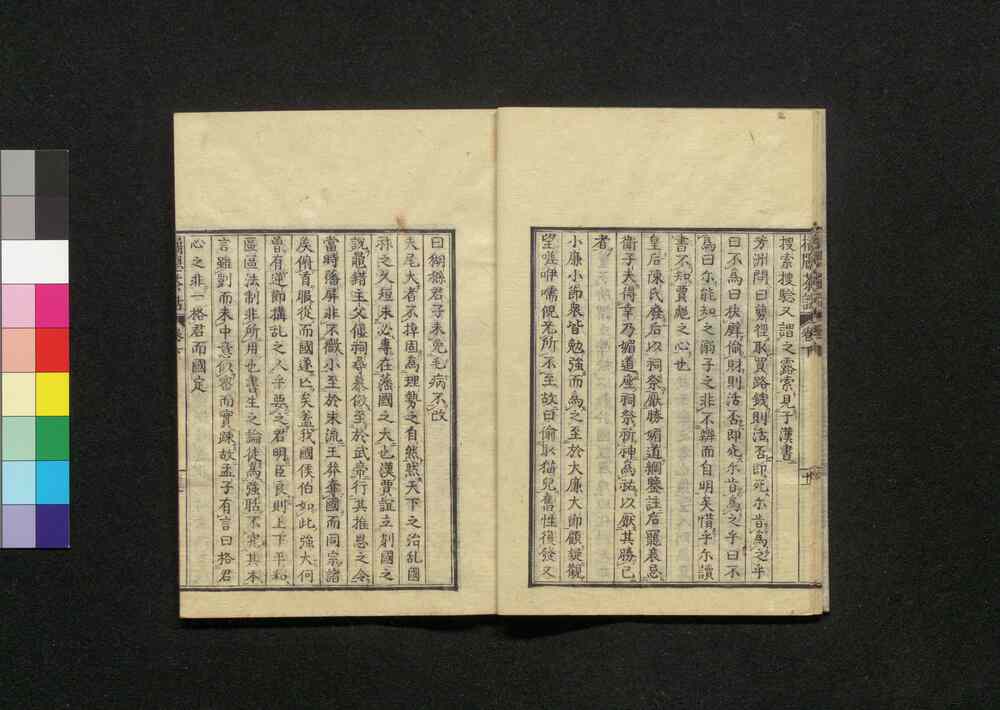 搜索搜驗又謂之露索見于漢書
芳洲問曰勢徑取買路錢則活否即死尓肯為之乎
曰不為曰枤劈偷財則活否即死尓肯為之乎曰不
為曰尓能知之翁子之非不辨而自明矣惜乎尓讀
書不知賈彪之心也
皇后陳氏廢后以祠祭厭勝媚道綱鑒註后寵衰忌
衛子夫得幸乃媚道座祠祭祈神為祐以厭其勝己
者
小廉小節衆皆勉強而為之至於大廉大節顧望觀
望嗟咿嚅倪无所不至故曰偷取猫兒舊性復發又
曰糊猻君子未免毛病不改
夫尾大者不掉固為理勢之自然然天下之治乱國
祚之久短未必專在藩國之大也漢賈誼立刻國之
說鼂錯主父偃祠尋慕倣至於武帝行其推恩之令
當時藩屏非不微小至於末流王莽奪國而同宗諸
矦俯首服從而國遂亾矣盖我國侯伯如此強大何
曽有逆節搆乱之人乎要之君明臣良則上下平和
區區法制非所用也書生之論徒為強聒不究其本
言雖剴而未中意似密而實疎故孟子有言曰格君
心之非一格君而國定